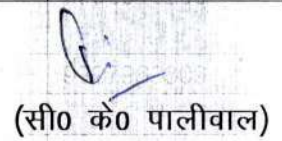 (सी0 के0 पालीवाल)